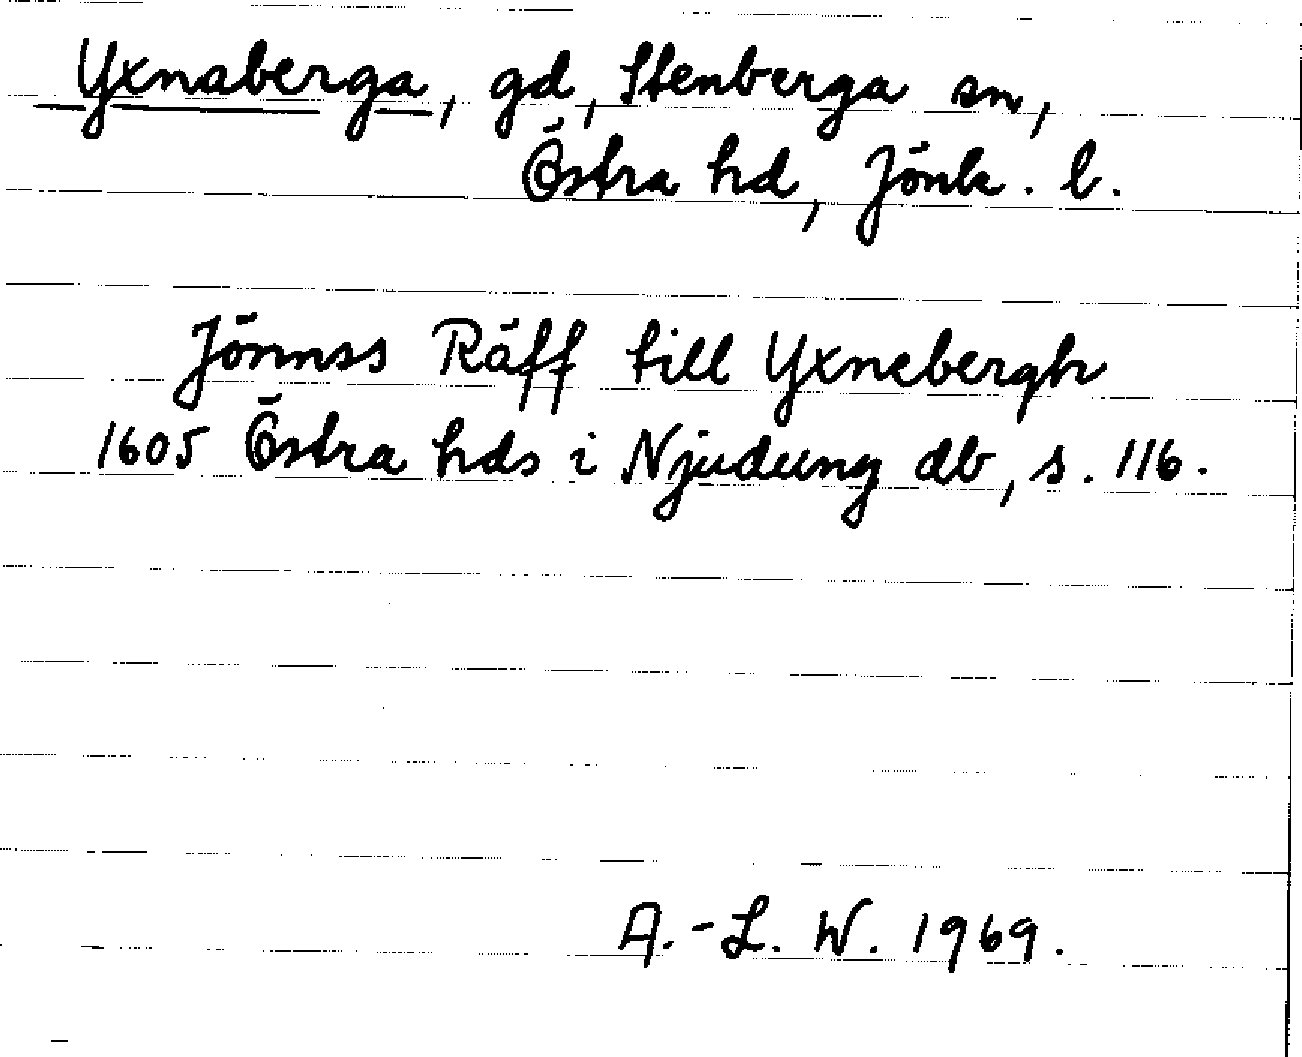 Yxnaberga, gd, Stenberga sn,
Östra hd, Jönk. l.
Jönnss Räff till Yxnebergh
1605 Östra hds i Njudung db, s. 116.
A.-L. W. 1969.